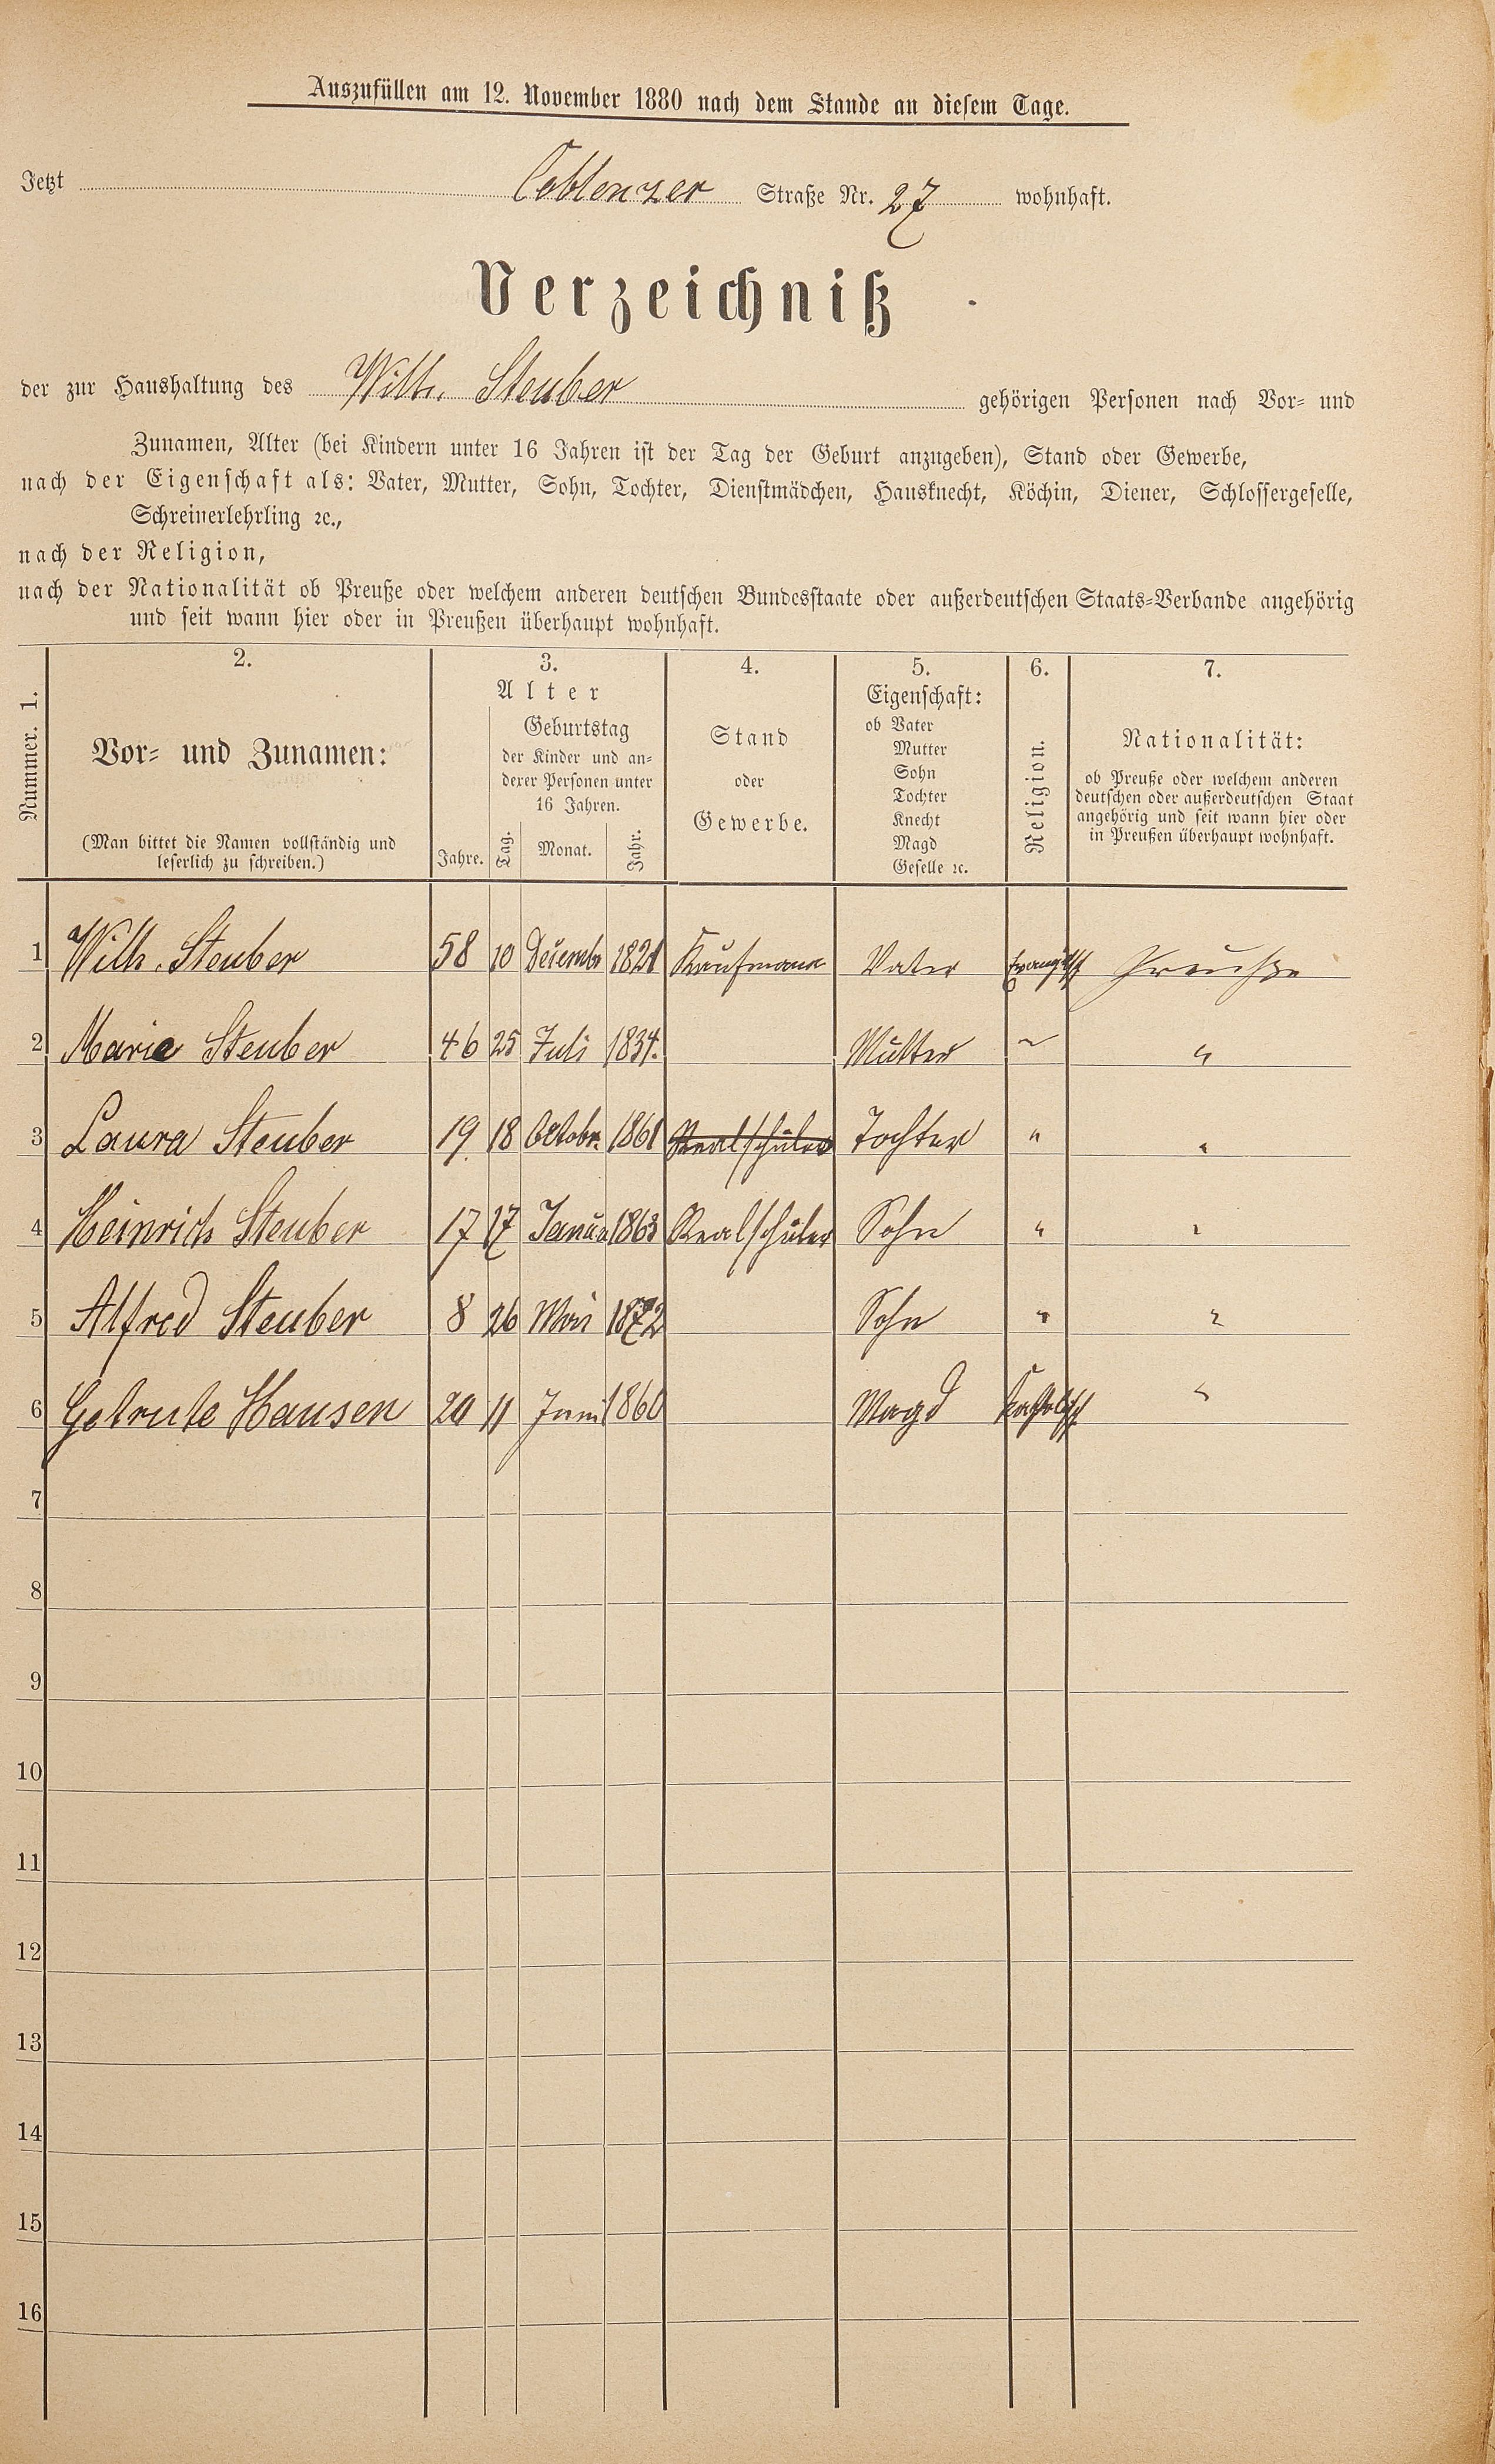 Auszufüllen am 12. November 1880 nach dem Stande an diesem Tage.
Jetzt Coblenzer Straße Nr. 27 wohnhaft.
Verzeichniß
der zur Haushaltung des Wilh. Steuber gehörigen Personen nach Vor- und
Zunamen, Alter (bei Kindern unter 16 Jahren ist der Tag der Geburt anzugeben), Stand oder Gewerbe,
nach der Eigenschaft als: Vater, Mutter, Sohn, Tochter, Dienstmädchen, Hausknecht, Köchin, Diener, Schlossergeselle,
Schreinerlehrling ꝛc.,
nach der Religion,
nach der Nationalität ob Preuße oder welchem anderen deutschen Bundesstaate oder außerdeutschen Staats-Verbande angehörig
und seit wann hier oder in Preußen überhaupt wohnhaft.
Nummer. 1.
2.
Vor- und Zunamen:
(Man bittet die Namen vollständig und
leserlich zu schreiben.)
3.
Alter
Jahre.
Geburtstag
der Kinder und an-
derer Personen unter
16 Jahren.
Tag. Monat. Jahr.
4.
Stand
oder
Gewerbe.
5.
Eigenschaft:
ob Vater
Mutter
Sohn
Tochter
Knecht
Magd
Geselle ꝛc.
6.
Religion.
7.
Nationalität:
ob Preuße oder welchem anderen
deutschen oder außerdeutschen Staat
angehörig und seit wann hier oder
in Preußen überhaupt wohnhaft.
1 Wilh. Steuber 58 10 Decembr 1821 Kaufmann Vater Preuße
2 Marie Steuber 46 25 Juli 1834. Mutter ~ "
3 Laura Steuber 19 18 Octobr. 1861 Realschüler Tochter " "
4 Heinrich Steuber 17 17 Janua 1863 Realschüler Sohn " "
5 Alfred Steuber 8 26 Mai 1872 Sohn " "
6 Getrute Hansen 20 11 Juni 1860 Magd Katholisch "
7
8
9
10
11
12
13
14
15
16